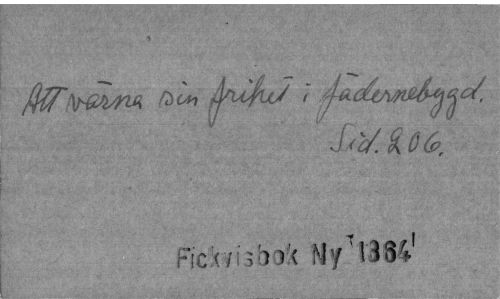 Att värna sin frihet i fädernebygd.
Sid. 206.
Fickvisbok Ny 1864